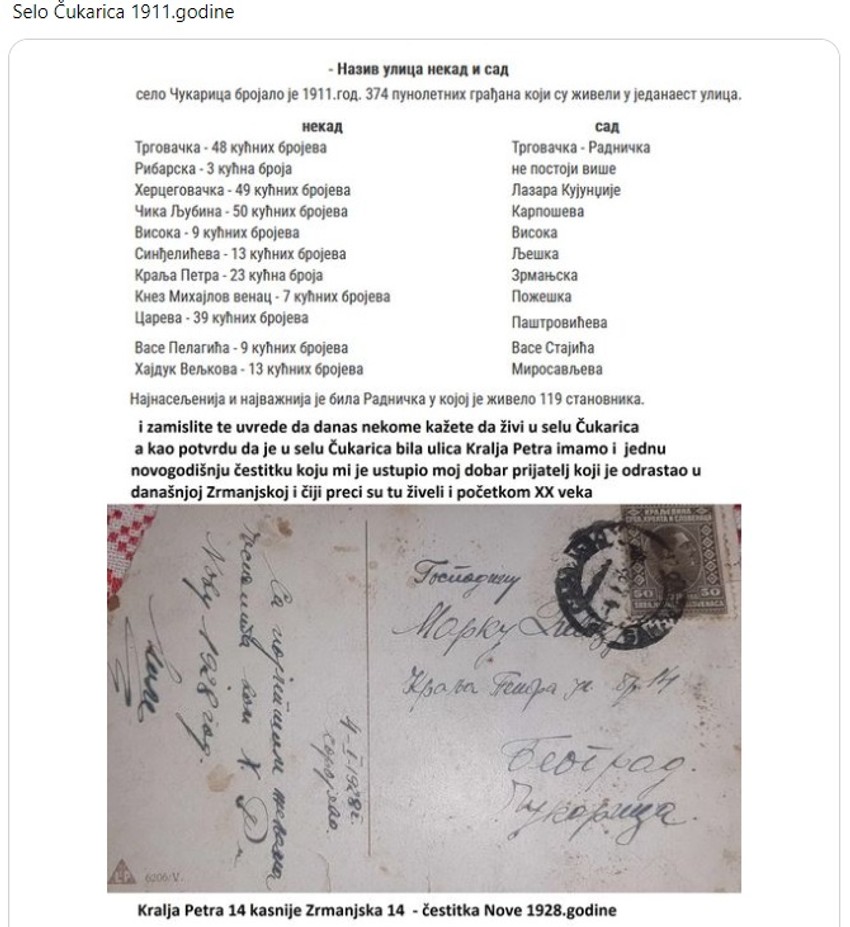 Selo Čukarica 1911.godine
- Назив улица некад и сад
село Чукарица бројало је 1911.год. 374 пунолетних грађана који су живели у једанаест улица.
некад сад
Трговачка - 48 кућних бројева Трговачка - Радничка
Рибарска - 3 кућна броја не постоји више
Херцеговачка - 49 кућних бројева Лазара Кујунџије
Чика Љубина - 50 кућних бројева Карпошева
Висока - 9 кућних бројева Висока
Синђелићева - 13 кућних бројева Љешка
Краља Петра - 23 кућна броја Зрмањска
Кнез Михајлов венац - 7 кућних бројева Пожешка
Царева - 39 кућних бројева Паштровићева
Васе Пелагића - 9 кућних бројева Васе Стајића
Хајдук Вељкова - 13 кућних бројева Миросављева
Најнасељенија и најважнија је била Радничка у којој је живело 119 становника.
i zamislite te uvrede da danas nekome kažete da živi u selu Čukarica
a kao potvrdu da je u selu Čukarica bila ulica Kralja Petra imamo i jednu
novogodišnju čestitku koju mi je ustupio moj dobar prijatelj koji je odrastao u
današnjoj Zrmanjskoj i čiji preci su tu živeli i početkom XX veka
КРАЉЕВИНА
СРБА, ХРВАТА И СЛОВЕНАЦА
50 50
Господину
Марку
Краља Петра ул. бр. 14
Београд.
Чукарица.
4-I-1928г.
Сарајево.
Са најлепшим жељама
Нову 1928 год.
6206/V.
Kralja Petra 14 kasnije Zrmanjska 14 - čestitka Nove 1928.godine